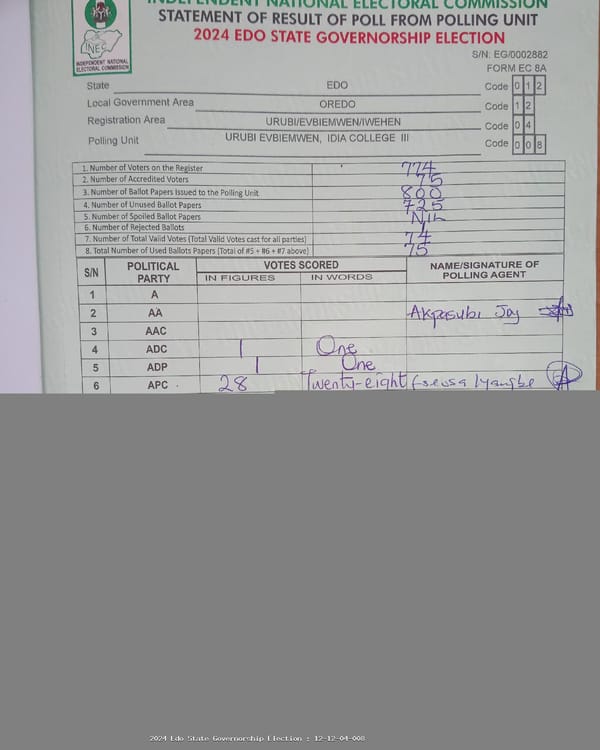 INDEPENDENT NATIONAL ELECTORAL COMMISSION
STATEMENT OF RESULT OF POLL FROM POLLING UNIT
2024 EDO STATE GOVERNORSHIP ELECTION
INEC
INDEPENDENT NATIONAL
ELECTORAL COMMISSION
S/N: EG/0002882
FORM EC 8A
State EDO Code 0 1 2
Local Government Area OREDO Code 1 2
Registration Area URUBI/EVBIEMWEN/IWEHEN Code 0 4
Polling Unit URUBI EVBIEMWEN, IDIA COLLEGE III Code 0 0 8
1. Number of Voters on the Register 774
2. Number of Accredited Voters 75
3. Number of Ballot Papers Issued to the Polling Unit 800
4. Number of Unused Ballot Papers 725
5. Number of Spoiled Ballot Papers Nil
6. Number of Rejected Ballots 1
7. Number of Total Valid Votes (Total Valid Votes cast for all parties) 74
8. Total Number of Used Ballots Papers (Total of #5 + #6 + #7 above) 75
S/N POLITICAL PARTY VOTES SCORED NAME/SIGNATURE OF POLLING AGENT
IN FIGURES IN WORDS
1 A
2 AA Akpasubi Joy
3 AAC
4 ADC 1 One
5 ADP 1 One
6 APC 28 Twenty-eight Iyangbe
2024 Edo State Governorship Election : 12-12-04-008